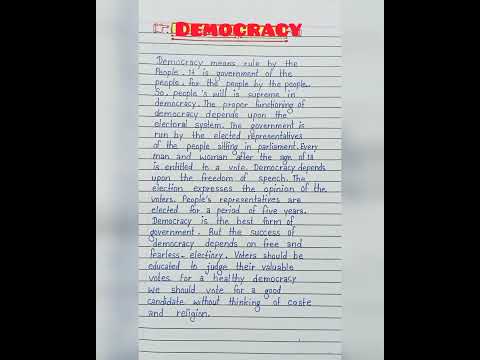 DEMOCRACY
Democracy means rule by the
People. It is government of the
people. for the people by the people.
So. people's will is supreme in
democracy. The proper functioning of
democracy depends upon the
electoral system. The government is
run by the elected representatives
of the people silling in parliament. Every
man and woman after the age of 18
is entitled to a vote. Democracy depends
upon the freedom of speech. The
election expresses the opinion of the
voters. People's representatives are
elected for a period of five years.
Democracy is the best form of
government. But the success of
democracy depends on free and
fearless. electiory. Voters should be
educated to judge their valuable
votes for a healthy democracy
we should vote for a good
candidate without thinking of caste
and religion.